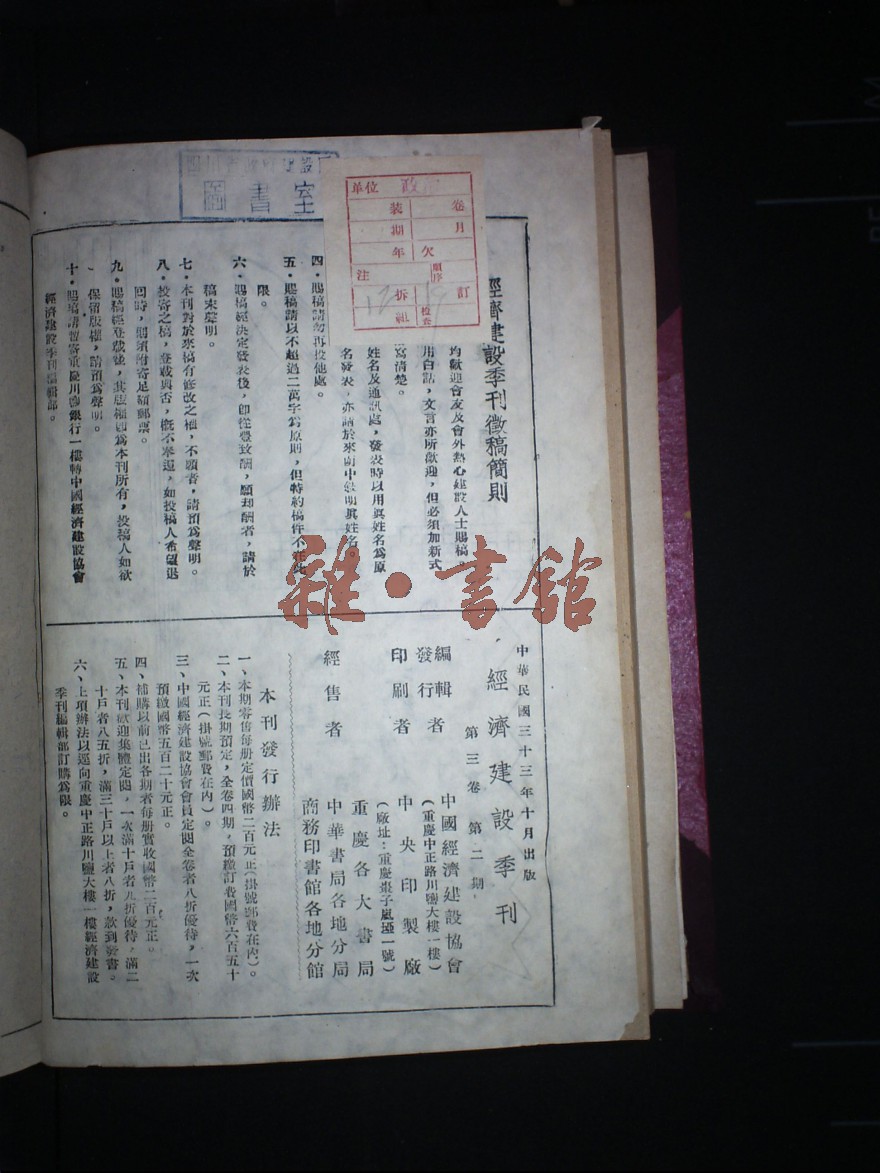 圖書室
單位 政
裝 卷
期 月
年 欠
注 順序
拆 訂
組 檢查
經濟建設季刊徵稿簡則
均歡迎會友及會外熱心建設人士賜稿。
用白話,文言亦所歡迎,但必須加新式
寫清楚。
姓名及通訊處,發表時以用眞姓名爲原
名發表,亦請於來函中註明眞姓名。
四・賜稿請勿再投他處。
五・賜稿請以不超過二萬字爲原則,但特約稿件不在此
限。
六・賜稿經決定發表後,卽從豐致酬,願却酬者,請於
稿末聲明。
七・本刊對於來稿有修改之權,不願者,請預爲聲明。
八・投寄之稿,登載與否,槪不奉還,如投稿人希望退
回時,則須附寄足額郵票。
九・賜稿經登載後,其版權卽爲本刊所有,投稿人如欲
保留版權,請預爲聲明。
十・賜稿請逕寄重慶川鹽銀行一樓轉中國經濟建設協會
經濟建設季刊編輯部。
雜・書館
中華民國三十三年十月出版
經濟建設季刊
第三卷 第二期
編輯者
發行者
中國經濟建設協會
(重慶中正路川鹽大樓一樓)
印刷者 中央印製廠
(廠址:重慶棗子嵐埡一號)
經售者
重慶各大書局
中華書局各地分局
商務印書館各地分館
本刊發行辦法
一、本期零售每册定價國幣二百元正(掛號郵費在內)。
二、本刊長期預定,全卷四期,預繳訂費國幣六百五十
元正(掛號郵費在內)。
三、中國經濟建設協會會員定閱全卷者八折優待,一次
預繳國幣五百二十元正。
四、補購以前已出各期者每册實收國幣二百元正。
五、本刊歡迎集體定閱,一次滿十戶者九折優待,滿二
十戶者八五折,滿三十戶以上者八折,款到寄書。
六、上項辦法以逕向重慶中正路川鹽大樓一樓經濟建設
季刊編輯部訂購爲限。